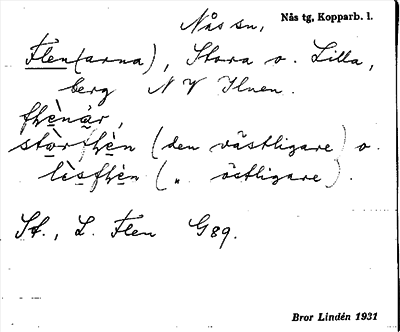 Nås sn, Nås tg, Kopparb. l.
Flen(arna), Stora o. Lilla,
berg N V Ilnen.
flenàr,
stòrflèn (den västligare) o.
lìsflèn ( „ östligare).
St., L. Flen G89.
Bror Lindén 1931